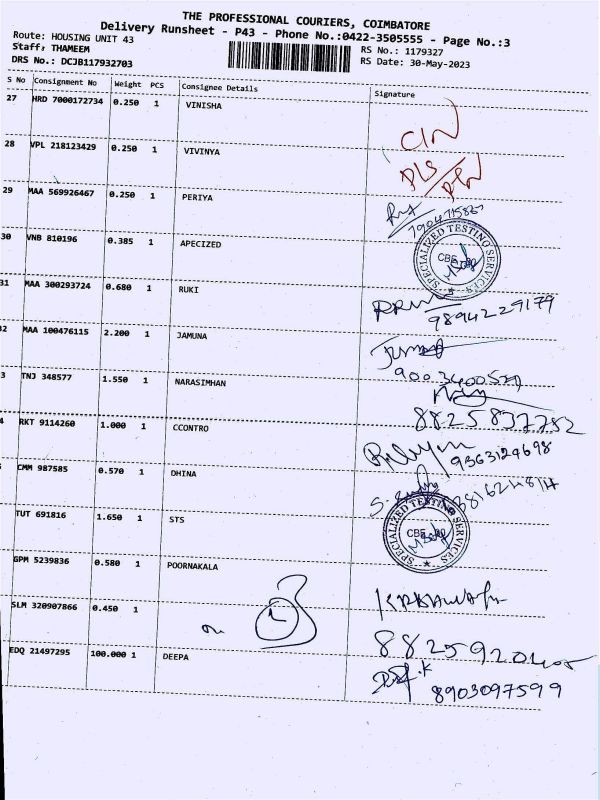 THE PROFESSIONAL COURIERS, COIMBATORE
Delivery Runsheet - P43 - Phone No.:0422-3505555 - Page No.:3
Route: HOUSING UNIT 43
RS No.: 1179327
Staff: THAMEEM
RS Date: 30-May-2023
DRS No.: DCJB117932703
S No Consignment No Weight PCS Consignee Details Signature
27 HRD 7000172734 0.250 1 VINISHA
28 VPL 218123429 0.250 1 VIVINYA
29 MAA 569926467 0.250 1 PERIYA
30 VNB 810196 0.385 1 APECIZED
SPECIALIZED TESTING SERVICES
CBE
31 MAA 300293724 0.680 1 RUKI
98942 29179
32 MAA 100476115 2.200 1 JAMUNA
3 TNJ 348577 1.550 1 NARASIMHAN
88258 37752
4 RKT 9114260 1.000 1 CCONTRO
9363129698
CMM 987585 0.570 1 DHINA
TUT 691816 1.650 1 STS
SPECIALIZED TESTING SERVICES
CBE
GPM 5239836 0.580 1 POORNAKALA
SLM 320907866 0.450 1
EDQ 21497295 100.000 1 DEEPA
8903097599